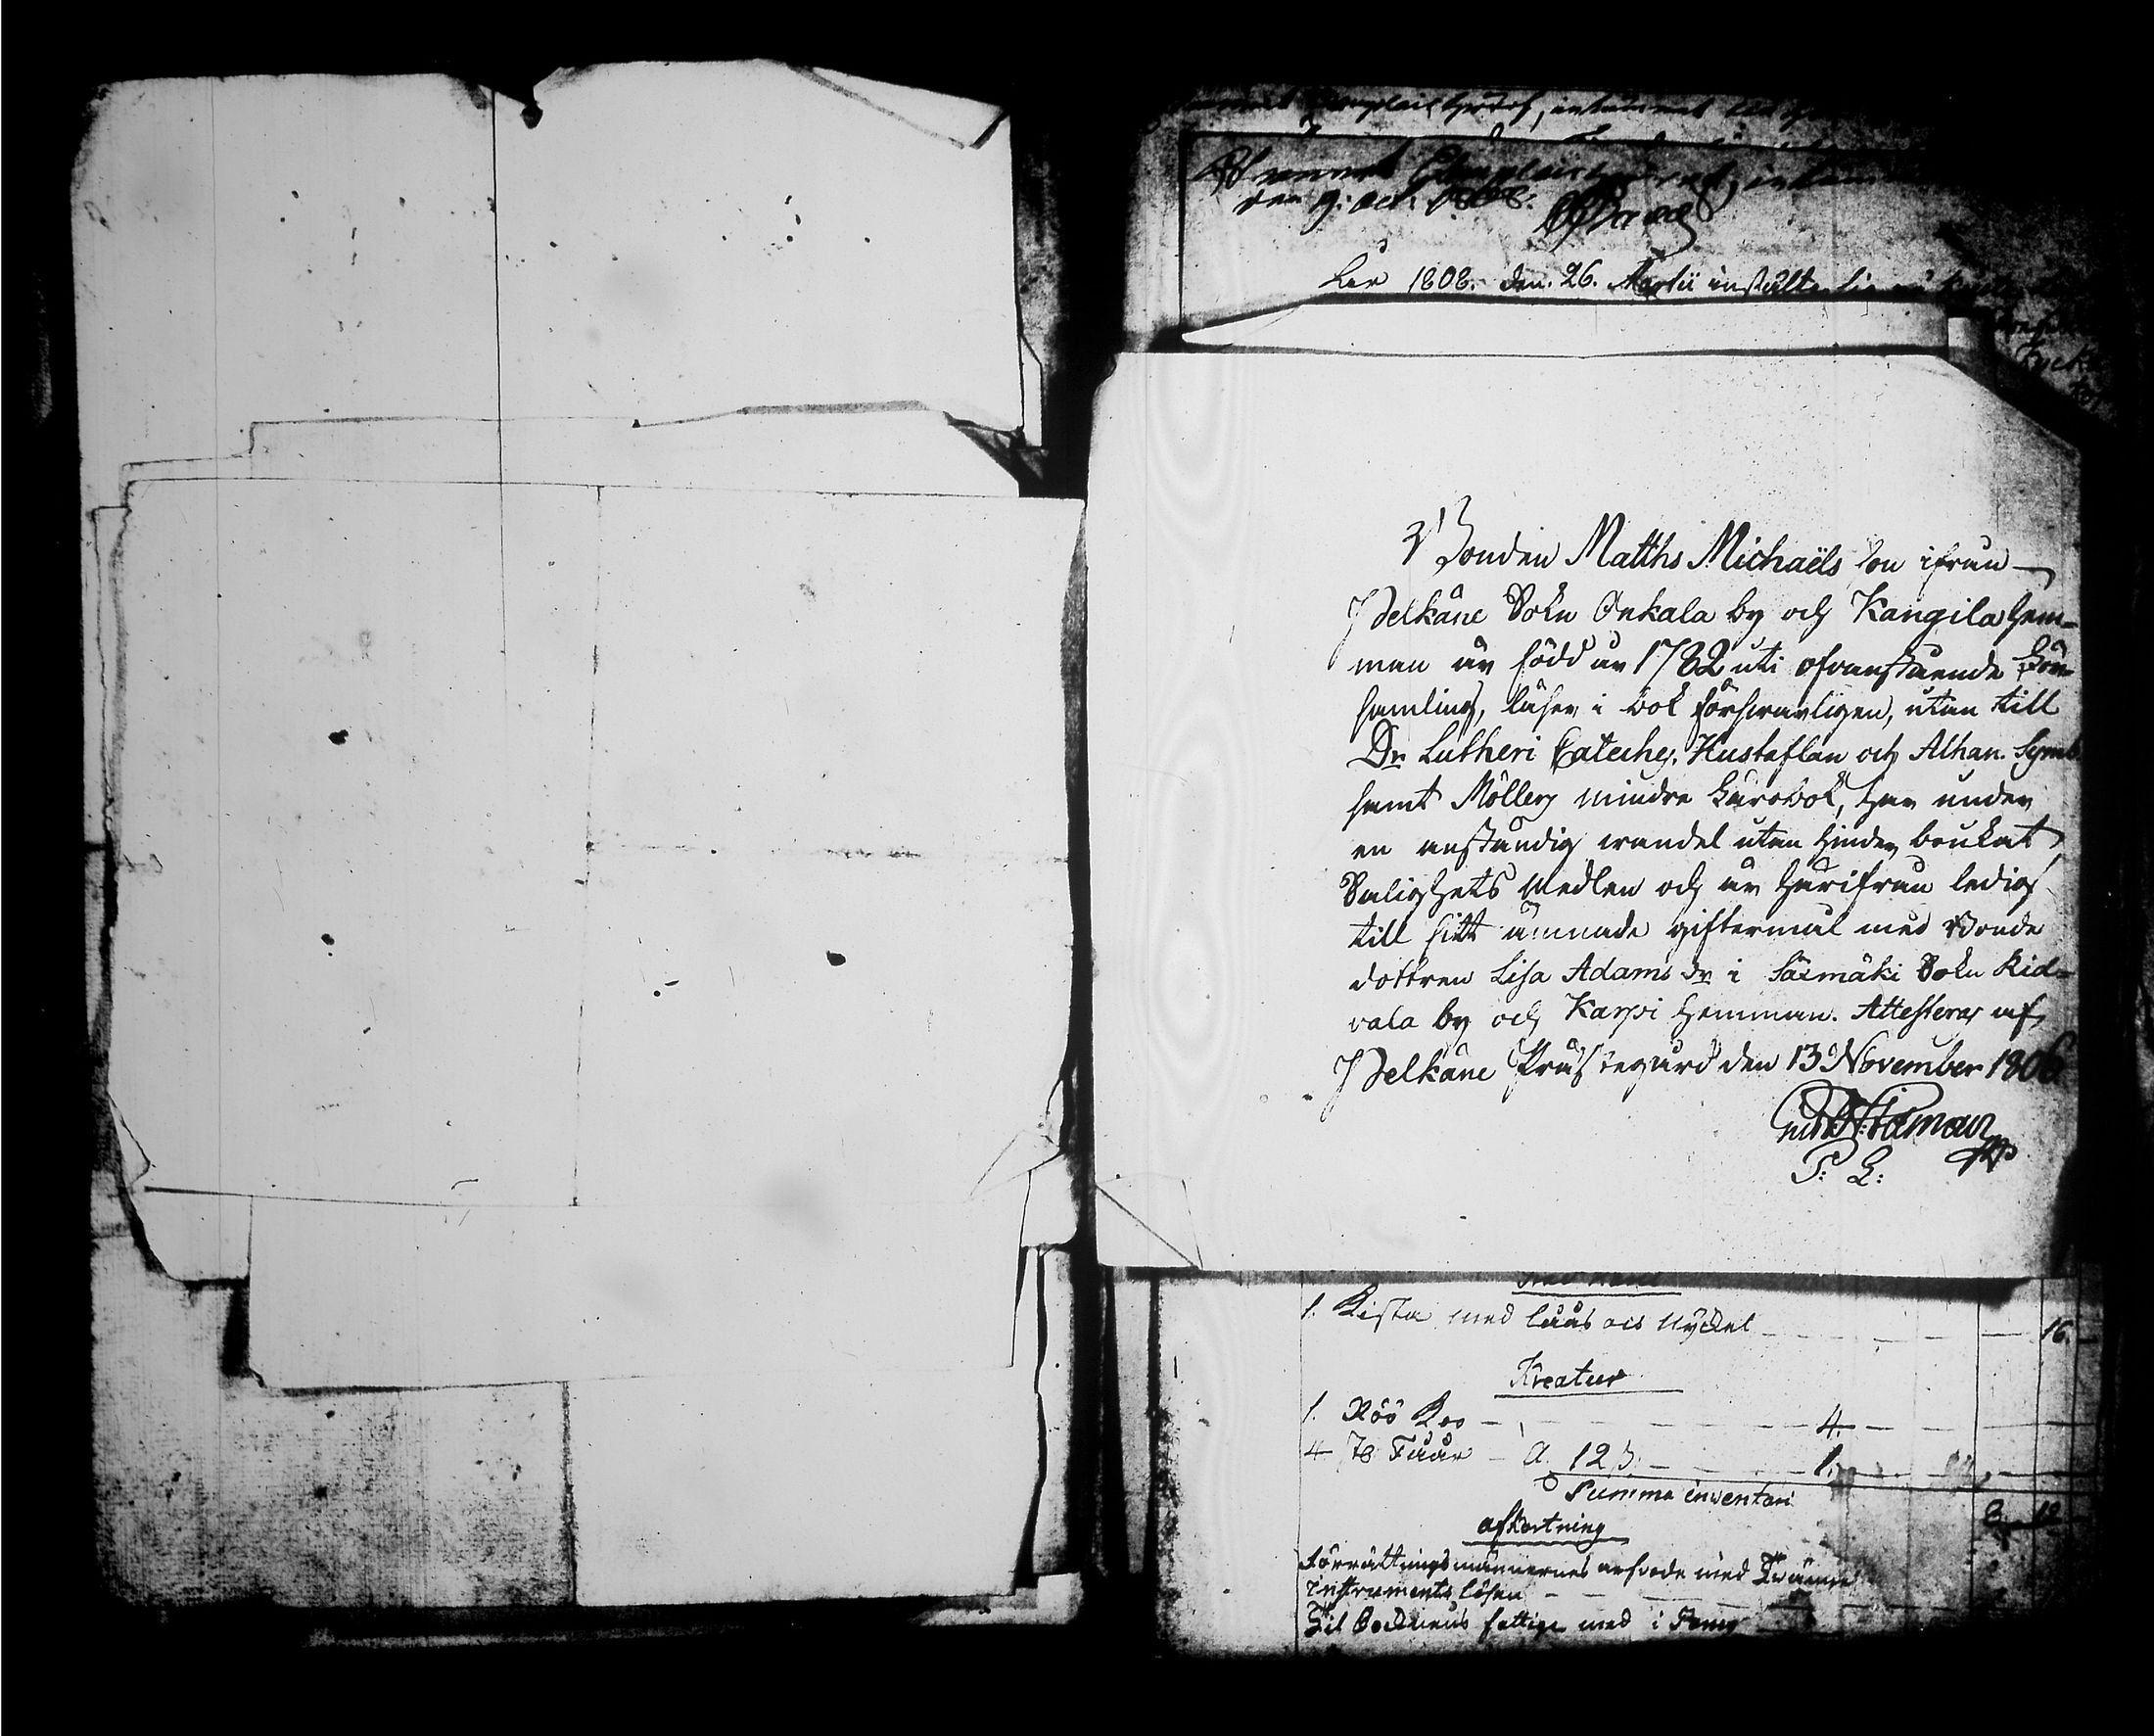 den 9: Oct: 1808.
Åhr 1808. den. 26. Martii instälte
Bonden Matths Michaëls Son ifrån
Pelkäne Sokn Onkala by och Kangila Hem-
man är född år 1782 uti ofvanstående För-
samling, läser i bok försvarligen, utan till
Dr Lutheri Cateches. Hustaflan och Athan. Symb
samt Möllers mindre Lärobok, har under
en anständig wandel utan hinder brukat
Salighets Medlen och är härifrån ledig
till sitt ämnade giftermål med Bonde
dottren Lisa Adams dr i Säxmäki Sokn Rid-
vala by och Karpi Hemman. Attesteras af
Pelkäne Prästegård den 13 November 1806
P: L:
1. Kista med lås och nyckel 16.
Kreatur
1. Röö Ko 4.
4 st Fåår a. 12 ß. 1.
Summa inventari
afkortning
Förrättningsmännernes arfvode med
instruments lösen
Til Socknens fattige med i Penng